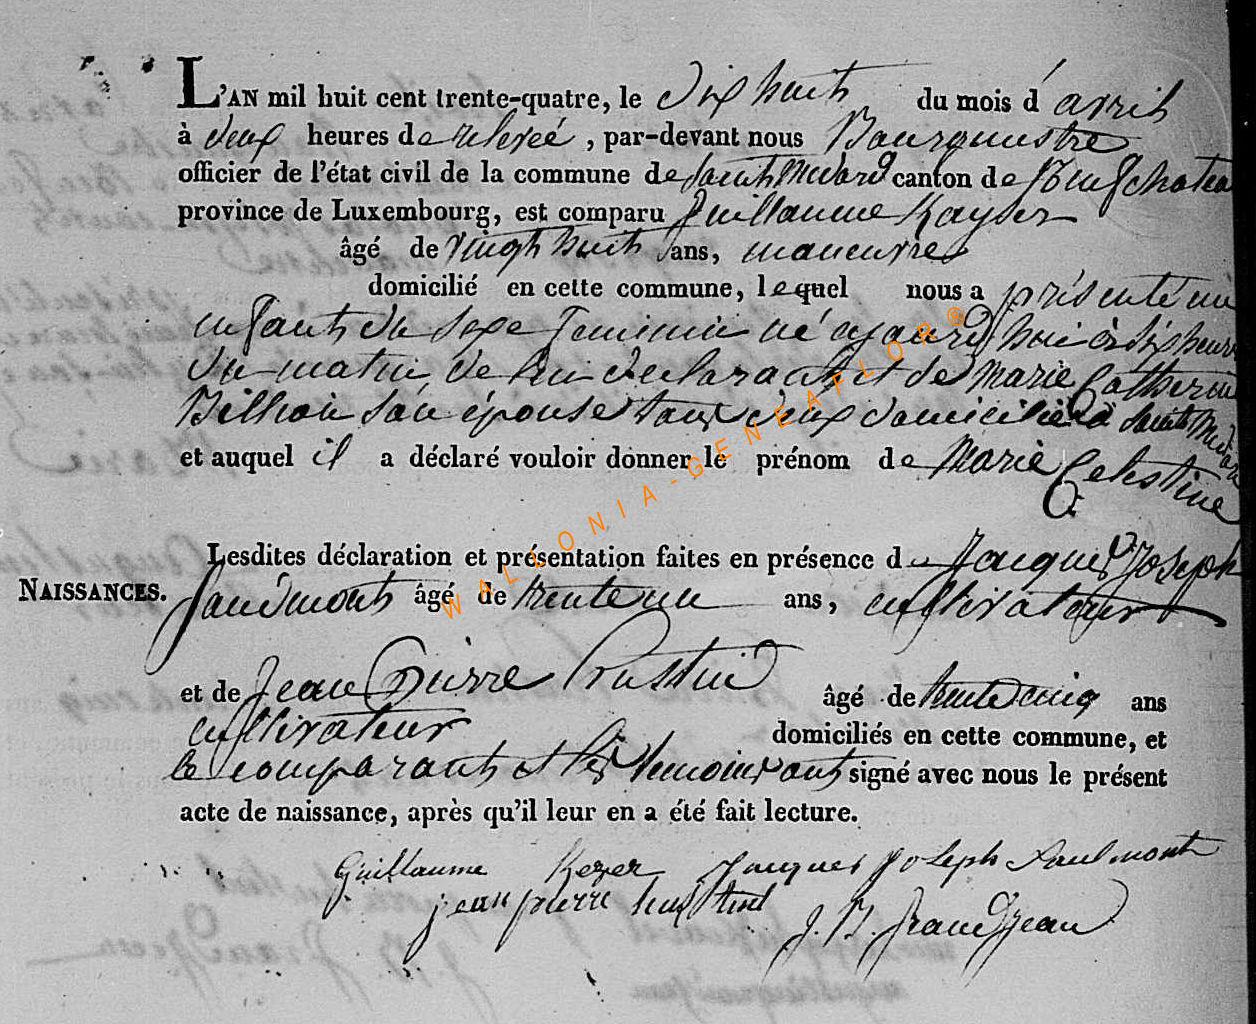 L'AN mil huit cent trente-quatre, le dix huit du mois d'avril
à deux heures de relevée, par-devant nous Bourgmestre
officier de l'état civil de la commune de Saint Médard canton de Neufchateau
province de Luxembourg, est comparu Guillaume Kayser
âgé de vingt huit ans, maneuvre
domicilié en cette commune, lequel nous a présenté un
enfant du sexe feminin né aujourd'hui à dix heures
du matin de lui declarant et de Marie Catherine
Billion son épouse tous deux domiciliés à Saint Médard
et auquel il a déclaré vouloir donner le prénom de Marie Celestine
Lesdites déclaration et présentation faites en présence de Jacques Joseph
NAISSANCES.
Saudmont âgé de trente un ans, cultivateur
et de Jean Pierre âgé de trente cinq ans
cultivateur domiciliés en cette commune, et
le comparant et les temoins ont signé avec nous le présent
acte de naissance, après qu'il leur en a été fait lecture.
Guillaume Keyser Jacques Joseph Saulmont
jean pierre J. B. Grandjean
WALLONIA-GENEAFLOR®